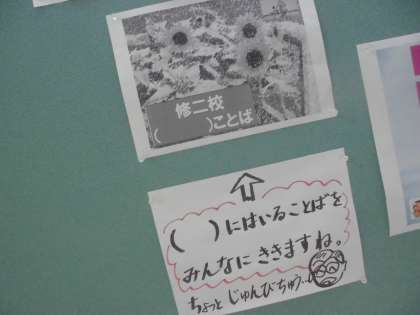 修二校
(　　)ことば
(　　)にはいることばを
みんなに ききますね。
ちょっと じゅんびちゅう…